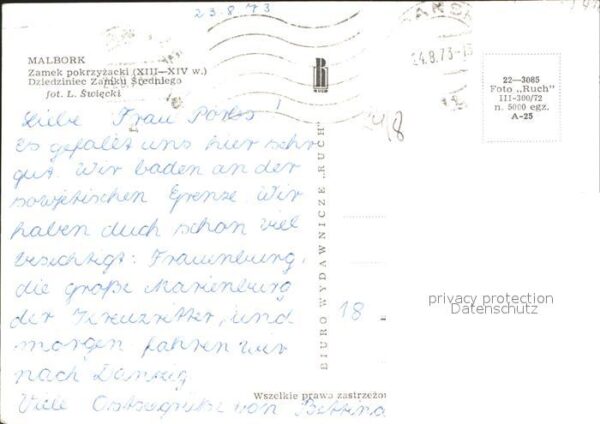 23.8.73
MALBORK
Zamek pokrzyżacki (XIII—XIV w.)
Dziedziniec Zamku Średniego
fot. L. Święcki
RUCH
24.8.73
22—3085
Foto „Ruch"
III-300/72
n. 5000 egz.
A-25
Liebe Frau
Es gefällt uns hier sehr
gut. Wir baden an der
sowjetischen Grenze. Wir
haben auch schon viel
besichtigt: Frauenburg,
die große Marienburg
der Kreuzritter, und
morgen fahren wir
nach Danzig
Viele Ostseegrüße von Bettina
BIURO WYDAWNICZE „RUCH"
18
privacy protection
Datenschutz
Wszelkie prawa zastrzeżon